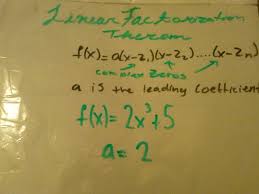 Linear Factorization
Therom
f(x)=a(x-z₁)(x-z₂)....(x-zₙ)
complex zeros
a is the leading coefficient
f(x)=2x³+5
a=2